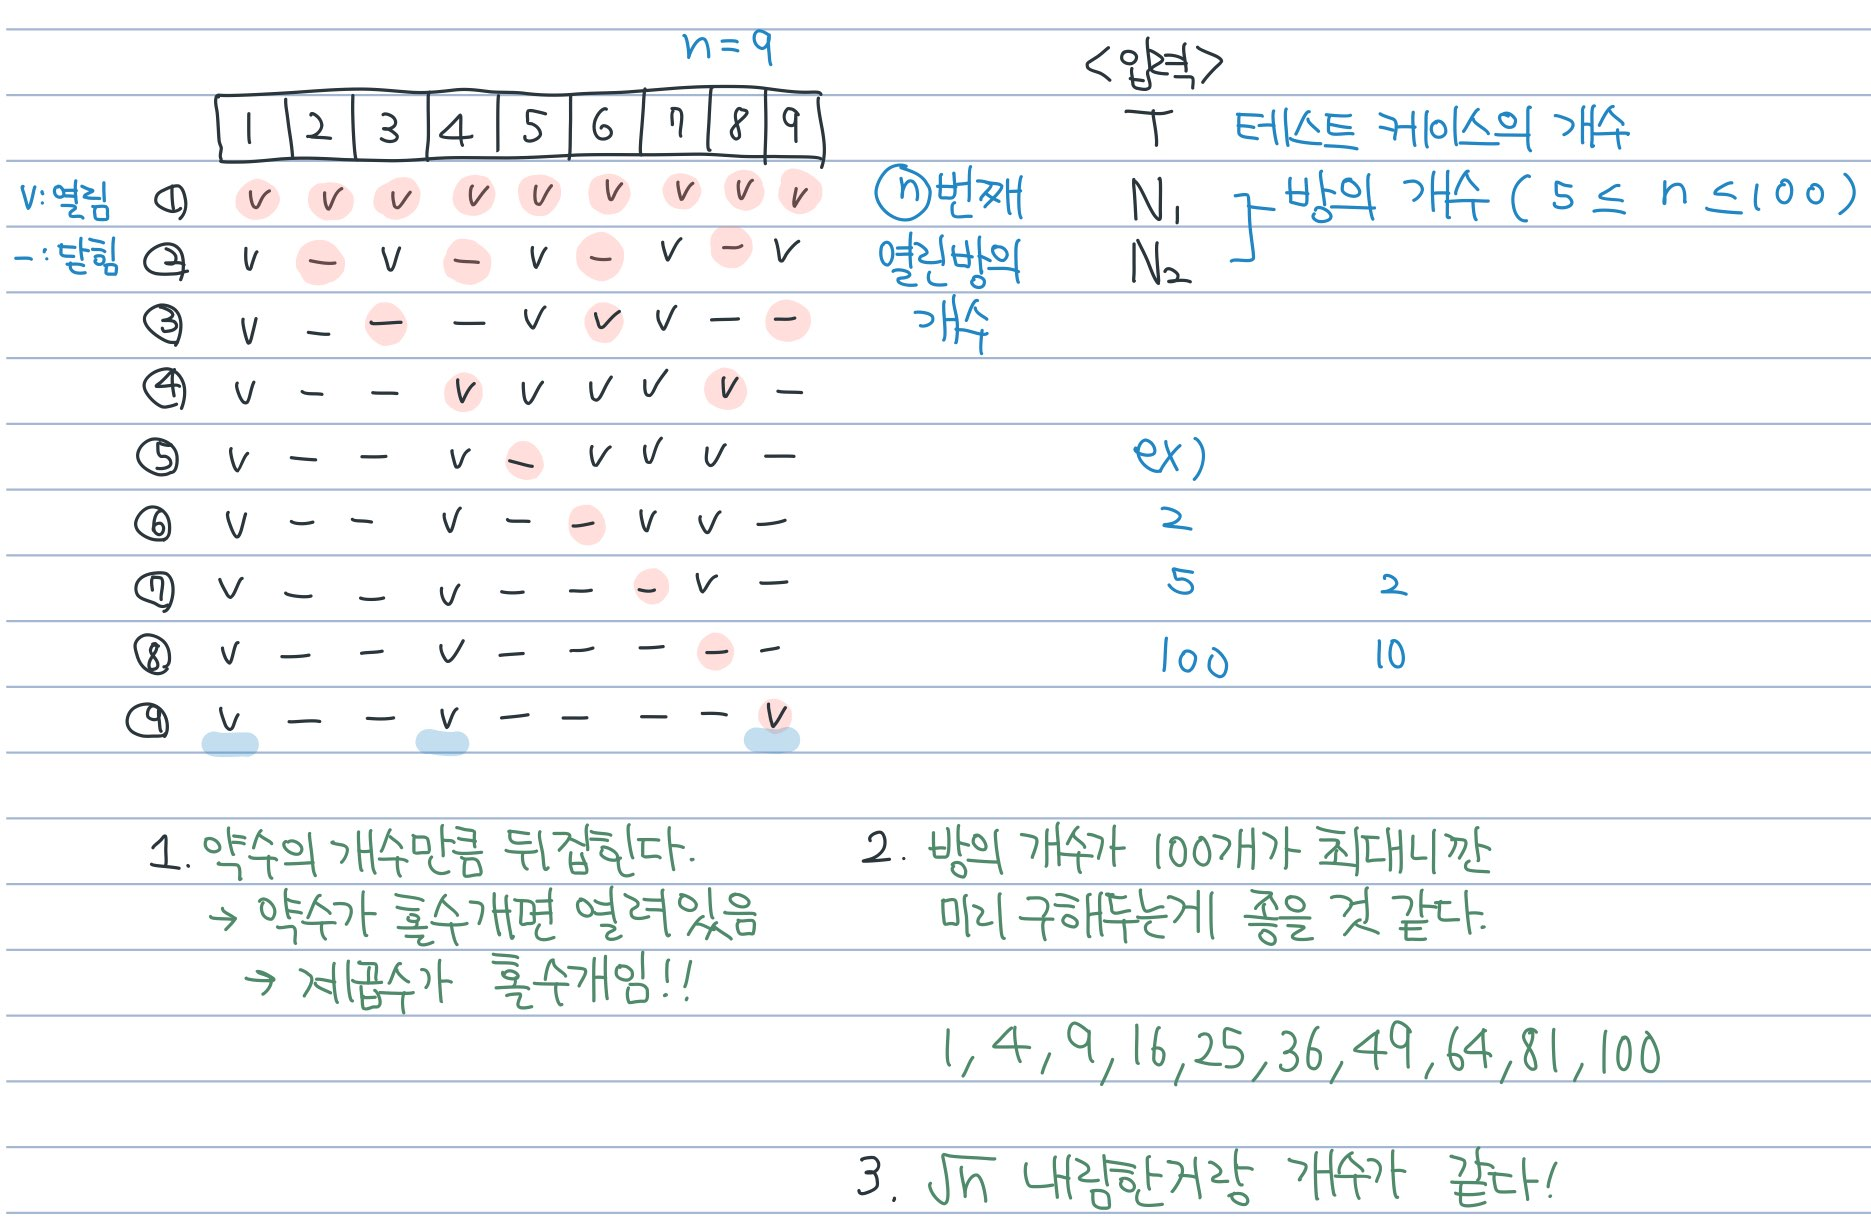 n=9
1 2 3 4 5 6 7 8 9
V:열림
-:닫힘
① v v v v v v v v v
② v - v - v - v - v
③ v - - - v v v - -
④ v - - v v v v v -
⑤ v - - v - v v v -
⑥ v - - v - - v v -
⑦ v - - v - - - v -
⑧ v - - v - - - - -
⑨ v - - v - - - - v
ⓝ번째
열린방의
개수
<입력>
T 테스트 케이스의 개수
N₁ 방의 개수 ( 5 ≤ n ≤ 100 )
N₂
ex)
2
5 2
100 10
1. 약수의 개수만큼 뒤집힌다.
→ 약수가 홀수개면 열려있음
→ 제곱수가 홀수개임!!
2. 방의 개수가 100개가 최대니깐
미리 구해두는게 좋을 것 같다.
1, 4, 9, 16, 25, 36, 49, 64, 81, 100
3. √n 내림한거랑 개수가 같다!